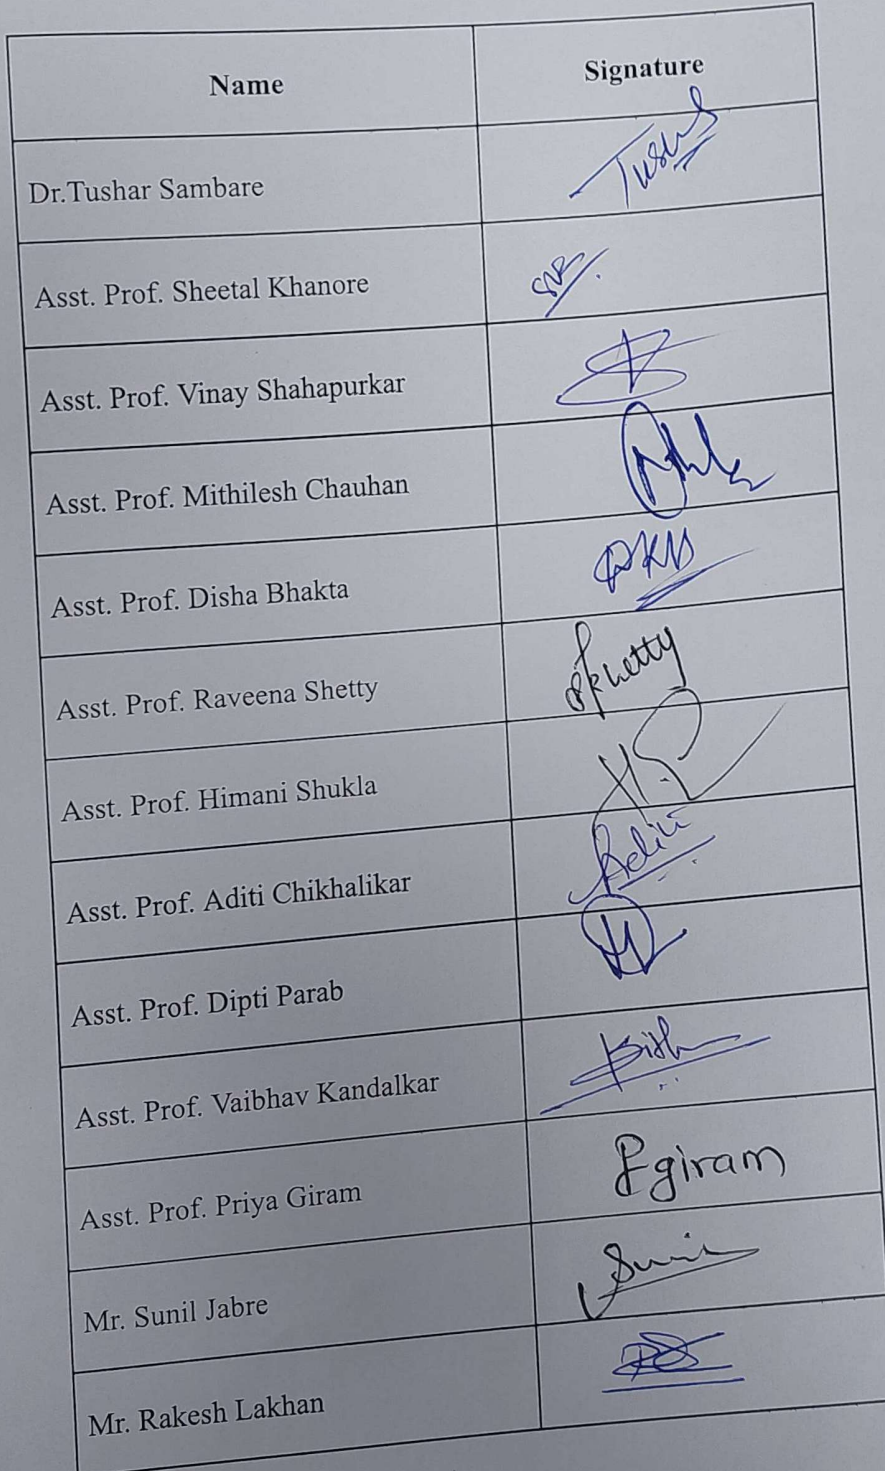 Name Signature
Dr.Tushar Sambare Tushar
Asst. Prof. Sheetal Khanore
Asst. Prof. Vinay Shahapurkar
Asst. Prof. Mithilesh Chauhan
Asst. Prof. Disha Bhakta
Asst. Prof. Raveena Shetty Shetty
Asst. Prof. Himani Shukla
Asst. Prof. Aditi Chikhalikar Aditi
Asst. Prof. Dipti Parab
Asst. Prof. Vaibhav Kandalkar
Asst. Prof. Priya Giram Pgiram
Mr. Sunil Jabre Sunil
Mr. Rakesh Lakhan